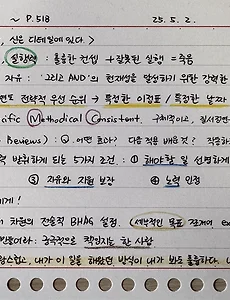 ~ P.518 25. 5. 2.
, 신은 디테일에 있다.>
, 실행력 : 훌륭한 전략 + 잘못된 실행 = 죽음
자유 : '그리고 AND'의 천재성을 달성하기 위한 강력한
전략적 우선 순위 → 특정한 이정표 / 특정한 날짜
cific Methodical Consistent. 구체적이고, 질서정연
Reviews) : Q. 어떤 효과? 다음 적용 배운 것?
발휘하게 되는 5가지 조건 : ① 해야할 일 선명하게
③ 자유와 지원 보장 ④ 노력 인정
게!
차원의 전술적 BHAG 설정. 세부적인 목표 쪼개어
: 궁극적으로 책임지는 한 사람
, 내가 이 일을 해왔던 방식이 내가 봐도 훌륭하다.